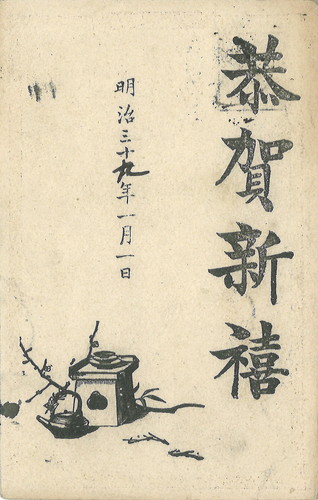 恭賀新禧
明治三十九年一月一日